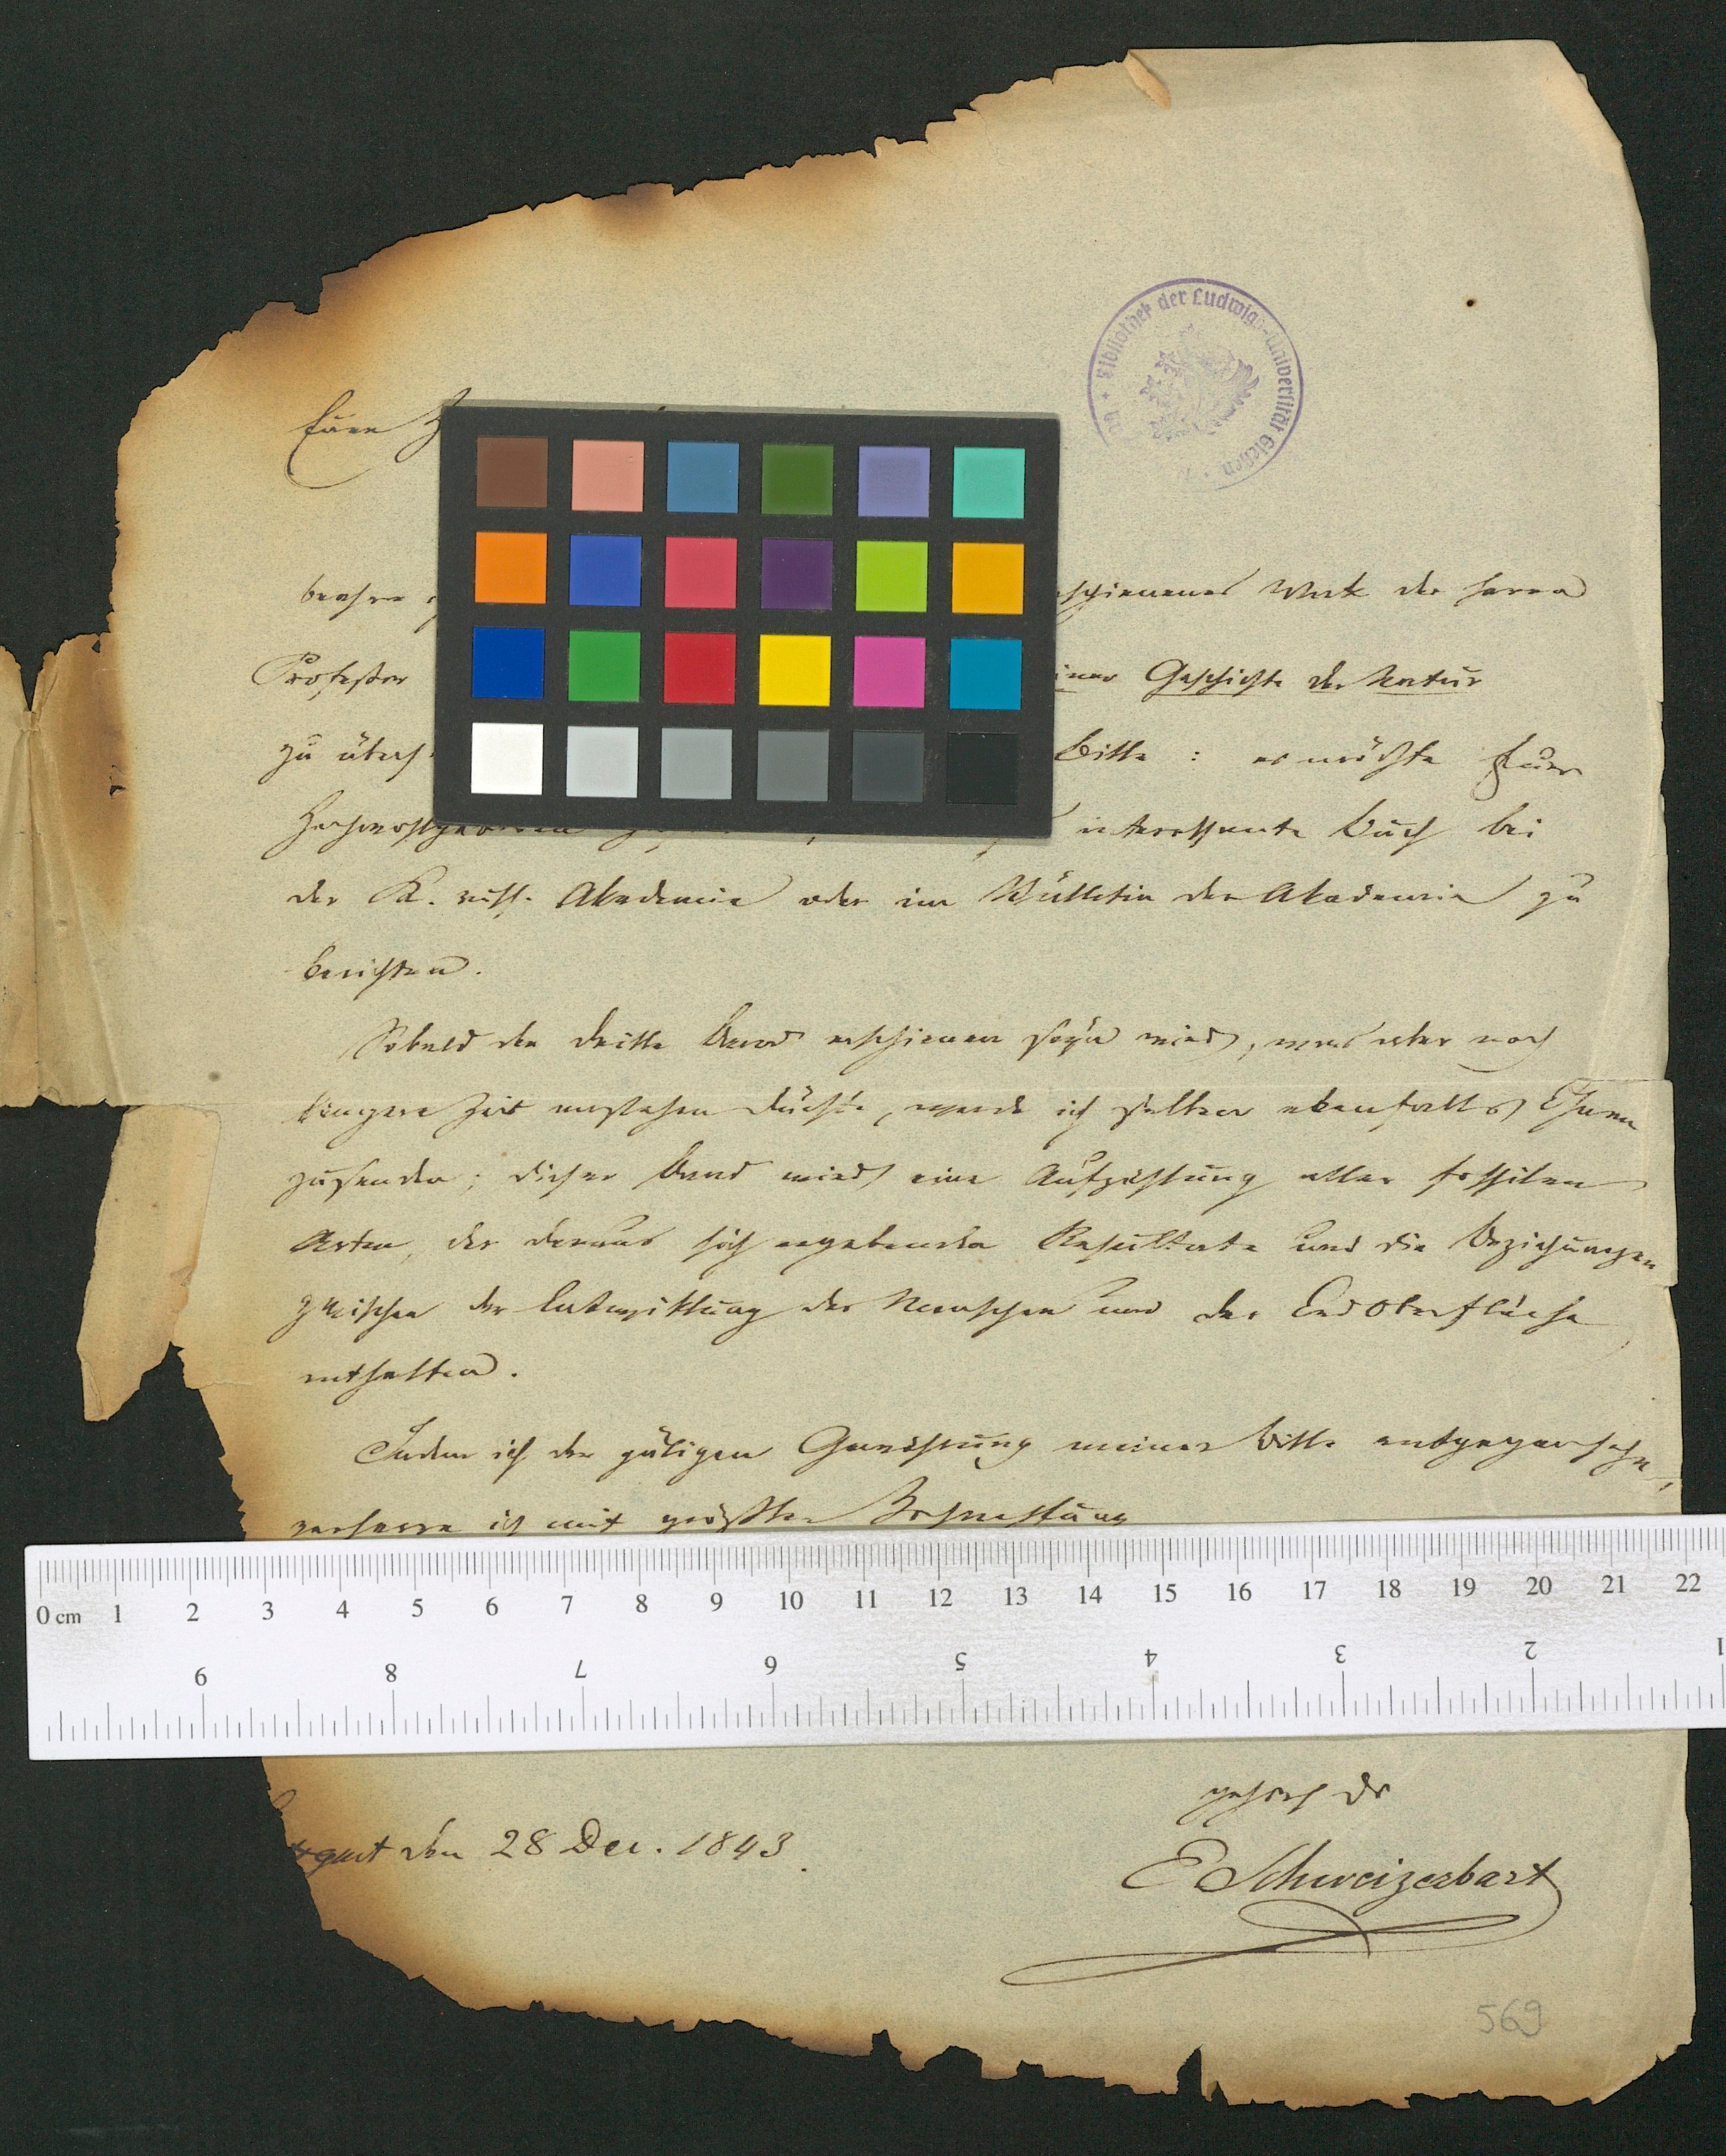 Bibliothek der Ludwigs-Universität Gießen
Euer
beehre schienenes Werk des Herrn
Professor einer Geschichte der Natur
zu übers Bitte : es möchte Euer
Hochwohlgeboren interessante Buch bei
der K. russ. Akademie oder im Bülletin der Akademie zu
berichten.
Sobald der dritte Band erschienen seyn wird, was aber noch
längere Zeit anstehen dürfte, werde ich selben ebenfalls Ihnen
zusenden; dieser Band wird eine Aufzählung aller fossilen
Arten, der daraus sich ergebenden Resultate und die Beziehungen
zwischen der Entwicklung des Menschen und der Erdoberfläche
enthalten.
Indem ich der gütigen Gewährung meiner Bitte entgegensehe,
verharre ich mit größter Hochachtung
0 cm 1 2 3 4 5 6 7 8 9 10 11 12 13 14 15 16 17 18 19 20 21 22
9 8 7 6 5 4 3 2 1
gehors Dr
tgart den 28 Dec. 1843.
E Schweizerbart
569